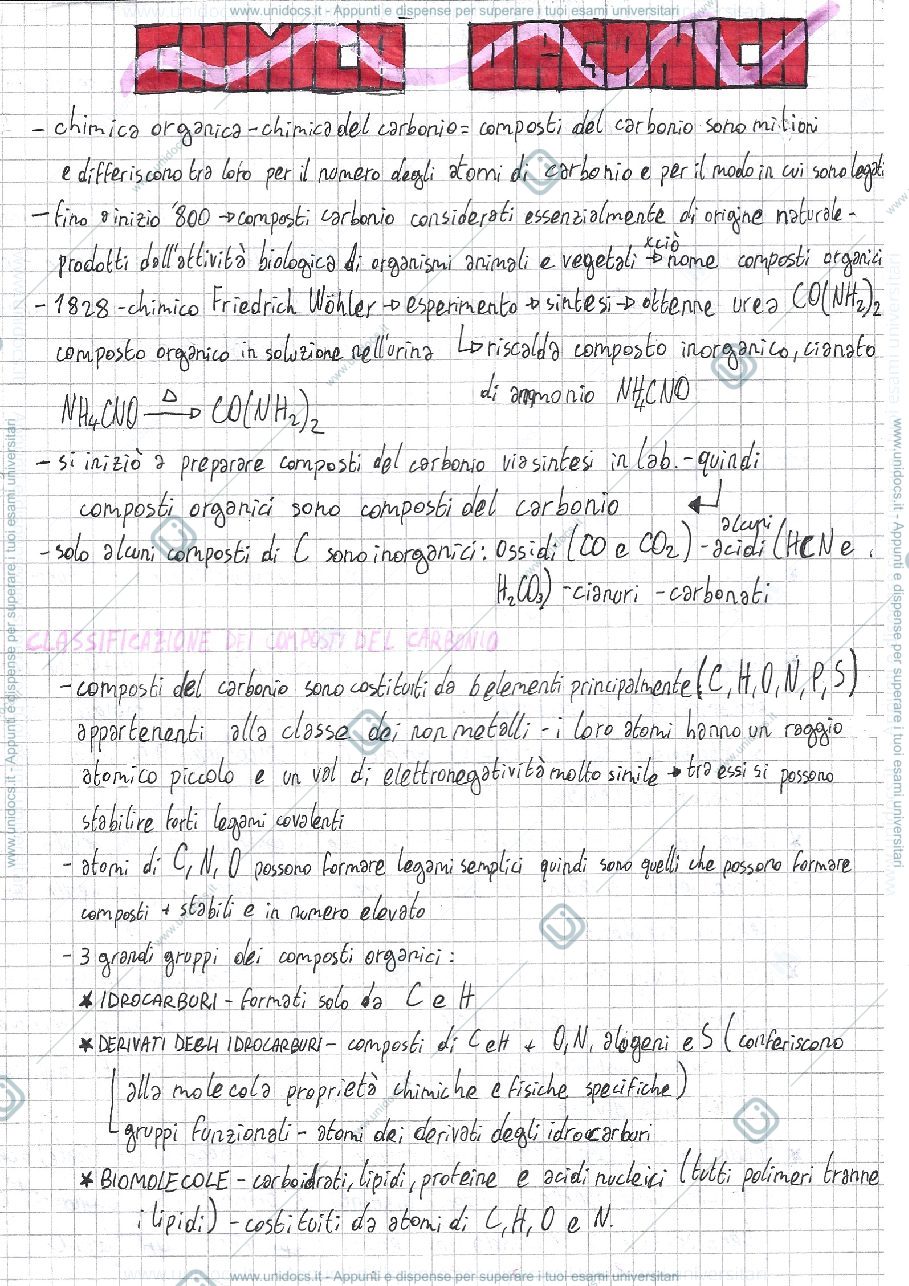 www.unidocs.it - Appunti e dispense per superare i tuoi esami universitari
CHIMICA ORGANICA
- chimica organica - chimica del carbonio = composti del carbonio sono milioni
e differiscono tra loro per il numero degli atomi di carbonio e per il modo in cui sono legati
- fino a inizio '800 → composti carbonio considerati essenzialmente di origine naturale -
xciò
prodotti dall'attività biologica di organismi animali e vegetali → nome composti organici
- 1828 - chimico Friedrich Wöhler → esperimento → sintesi → ottenne urea CO(NH₂)₂
composto organico in soluzione nell'urina ↳ riscalda composto inorganico, cianato
di ammonio NH₄CNO
NH₄CNO —Δ→ CO(NH₂)₂
- si iniziò a preparare composti del carbonio via sintesi in lab. - quindi
composti organici sono composti del carbonio ↵
alcuni
- solo alcuni composti di C sono inorganici: ossidi (CO e CO₂) - acidi (HCN e
H₂CO₃) - cianuri - carbonati
CLASSIFICAZIONE DEI COMPOSTI DEL CARBONIO
- composti del carbonio sono costituiti da 6 elementi principalmente (C, H, O, N, P, S)
appartenenti alla classe dei non metalli - i loro atomi hanno un raggio
atomico piccolo e un val di elettronegatività molto simile → tra essi si possono
stabilire forti legami covalenti
- atomi di C, N, O possono formare legami semplici quindi sono quelli che possono formare
composti + stabili e in numero elevato
- 3 grandi gruppi dei composti organici:
★ IDROCARBURI - formati solo da C e H
★ DERIVATI DEGLI IDROCARBURI - composti di C e H + O, N, alogeni e S (conferiscono
alla molecola proprietà chimiche e fisiche specifiche)
↳ gruppi funzionali - atomi dei derivati degli idrocarburi
★ BIOMOLECOLE - carboidrati, lipidi, proteine e acidi nucleici (tutti polimeri tranne
i lipidi) - costituiti da atomi di C, H, O e N.
www.unidocs.it - Appunti e dispense per superare i tuoi esami universitari
www.unidocs.it - Appunti e dispense per superare i tuoi esami universitari
www.unidocs.it - Appunti e dispense per superare i tuoi esami universitari